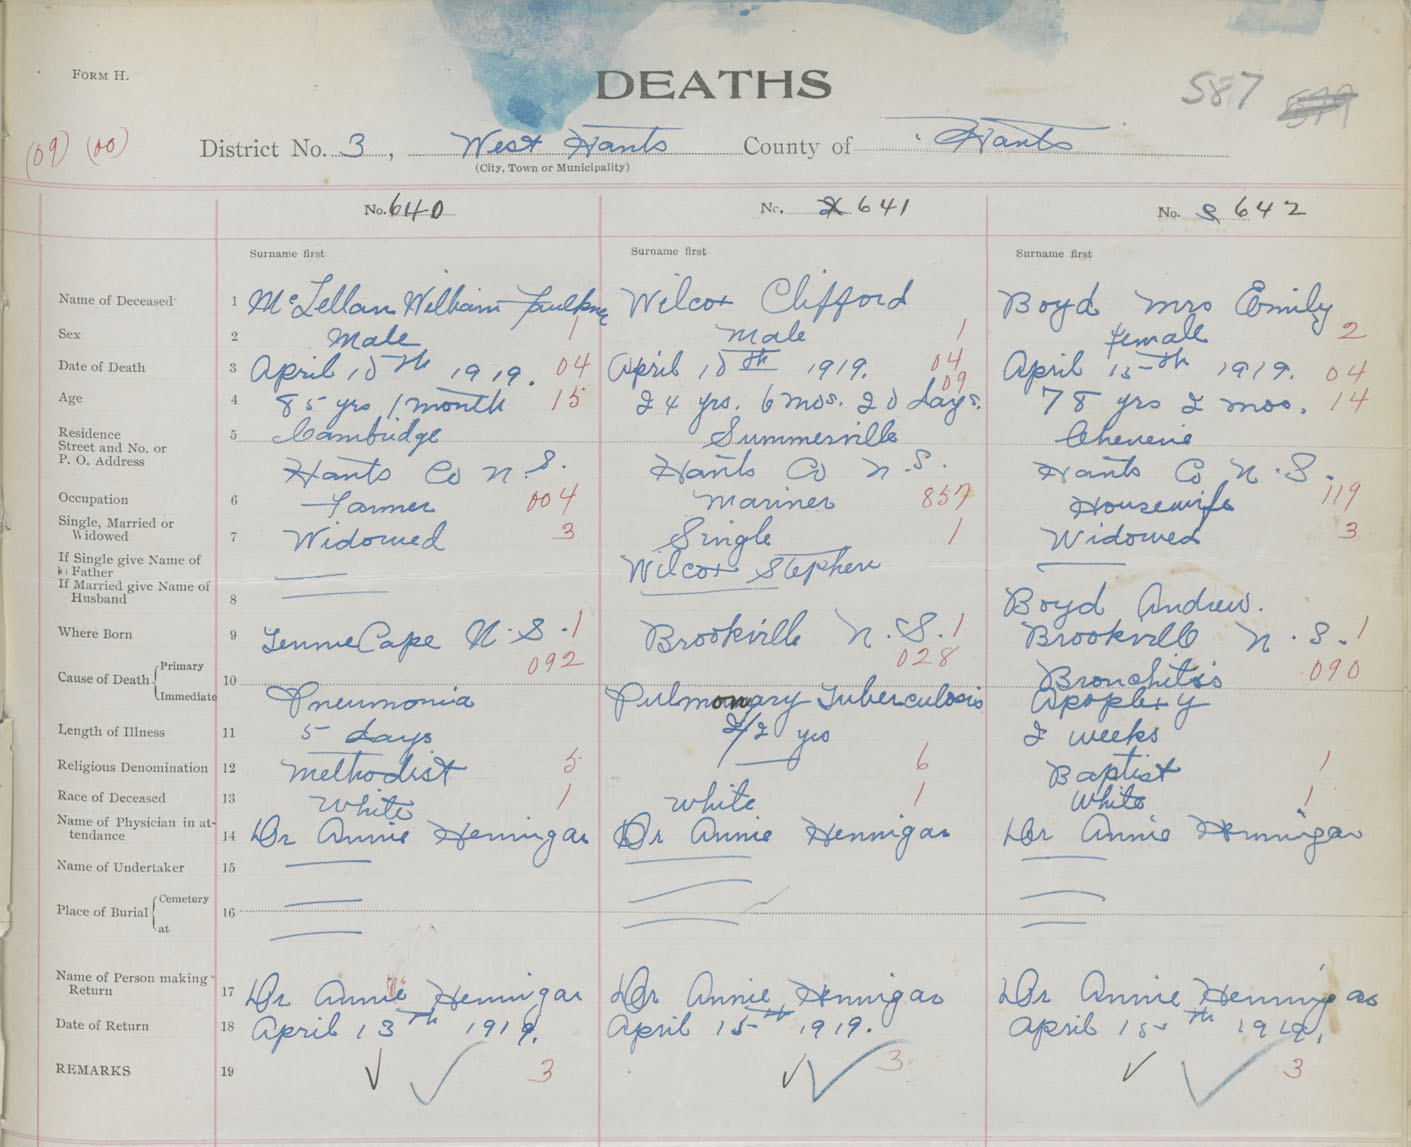 FORM H.
DEATHS
587 579
(09) (00)
District No. 3, West Hants County of Hants
(City, Town or Municipality)
No. 640 No. 2 641 No. 3 642
Surname first Surname first Surname first
Name of Deceased 1 McLellan William Faulkner Wilcox Clifford Boyd Mrs Emily
Sex 2 Male 1 Male 1 female 2
Date of Death 3 April 10th 1919. 04 April 10th 1919. 04 April 15th 1919. 04
Age 4 85 yrs 1 month 15 24 yrs. 6 mos. 20 days. 09 78 yrs 2 mos. 14
Residence
Street and No. or
P. O. Address 5 Cambridge Summerville Cheverie
Hants Co N.S. Hants Co N.S. Hants Co N.S.
Occupation 6 Farmer 004 Mariner 857 Housewife 119
Single, Married or
Widowed 7 Widowed 3 Single 1 Widowed 3
If Single give Name of
Father Wilcox Stephen
If Married give Name of
Husband 8 Boyd Andrew.
Where Born 9 Tennie Cape N.S. 1 Brookville N.S. 1 Brookville N.S. 1
Cause of Death Primary 10 092 028 Bronchitis 090
Immediate Pneumonia Pulmonary Tuberculosis Apoplexy
Length of Illness 11 5 days 2/2 yrs 2 weeks
Religious Denomination 12 Methodist 5 6 Baptist 1
Race of Deceased 13 White 1 White 1 White 1
Name of Physician in at-
tendance 14 Dr Annie Hennigar Dr Annie Hennigar Dr Annie Hennigar
Name of Undertaker 15
Place of Burial Cemetery 16
at
Name of Person making
Return 17 Dr Annie Hennigar Dr Annie Hennigar Dr Annie Hennigar
Date of Return 18 April 13th 1919. April 15th 1919. April 15th 1919.
REMARKS 19 3 3 3